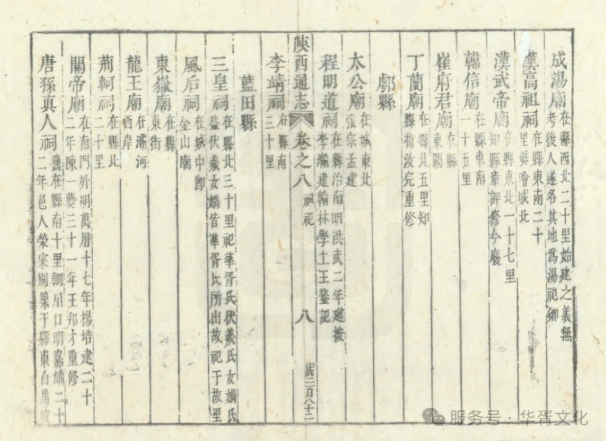 成湯廟 在縣西北二十里始建之義無
考後人遂名其地爲湯祀鄉
漢高祖祠 在縣東南二十
里 城北
漢武帝廟 在縣東北一十七里
知縣章評修今廢
韓信廟 在縣東南
一十五里
崔府君廟 在縣
東關
丁蘭廟 在縣北五里知
縣 重修
鄠縣
太公廟 在城東北
張宗孟建
程明道祠 在縣治南明洪武二年建後
李瀛建翰林學士王鏊記
陝西通志 卷之八 祠祀 八
李靖祠 在縣南
三十里
藍田縣
三皇祠 在縣北三十里祀華胥氏伏羲氏女媧氏
蓋伏羲女媧皆華胥氏所出故祀于故里
風后祠 在城中卽
金山廟
東嶽廟 在縣
東街
龍王廟 在灞河
西岸
荊軻祠 在縣北
二十里
關帝廟 在南門外明萬曆十七年楊培建二十
二年陳一 三十一年王邦才重修
唐孫真人祠 舊在縣南十里 口明嘉靖二十
二年邑人榮宋別築于縣東白馬
服务号·华胥文化